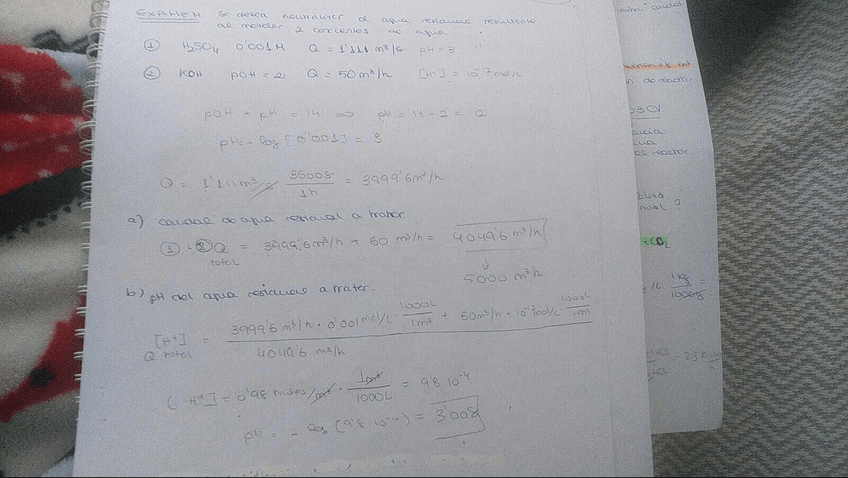 EXAMEN Se desea neutralizar el agua residual resultante
al mezclar 2 corrientes de agua.
① H₂SO₄ 0'001M Q = 1'111 m³/s pH = 3
② KOH pOH = 2 Q = 50 m³/h [H⁺] = 10⁻¹² mol/L
pOH + pH = 14 ⟹ pH = 14 - 2 = 12
pH = - log [0'001] = 3
Q = 1'111 m³/s · 3600s / 1h = 3999'6 m³/h
a) caudal de agua residual a tratar
Q total = 3999'6 m³/h + 50 m³/h = 4049'6 m³/h
↓
5000 m³/h
b) pH del agua residual a tratar.
[H⁺] Q total = 3999'6 m³/h · 0'001 mol/L · 1000L / 1m³ + 50 m³/h · 10⁻¹² mol/L · 1000L / 1m³
4049'6 m³/h
[H⁺] = 0'98 moles/m³ · 1m³ / 1000L = 9'8 10⁻⁴
pH = - log (9'8 10⁻⁴) = 3'008
caudal
de reactor
BCV
reactor.
?
CO₂
/L 1 kg / 1000 g =